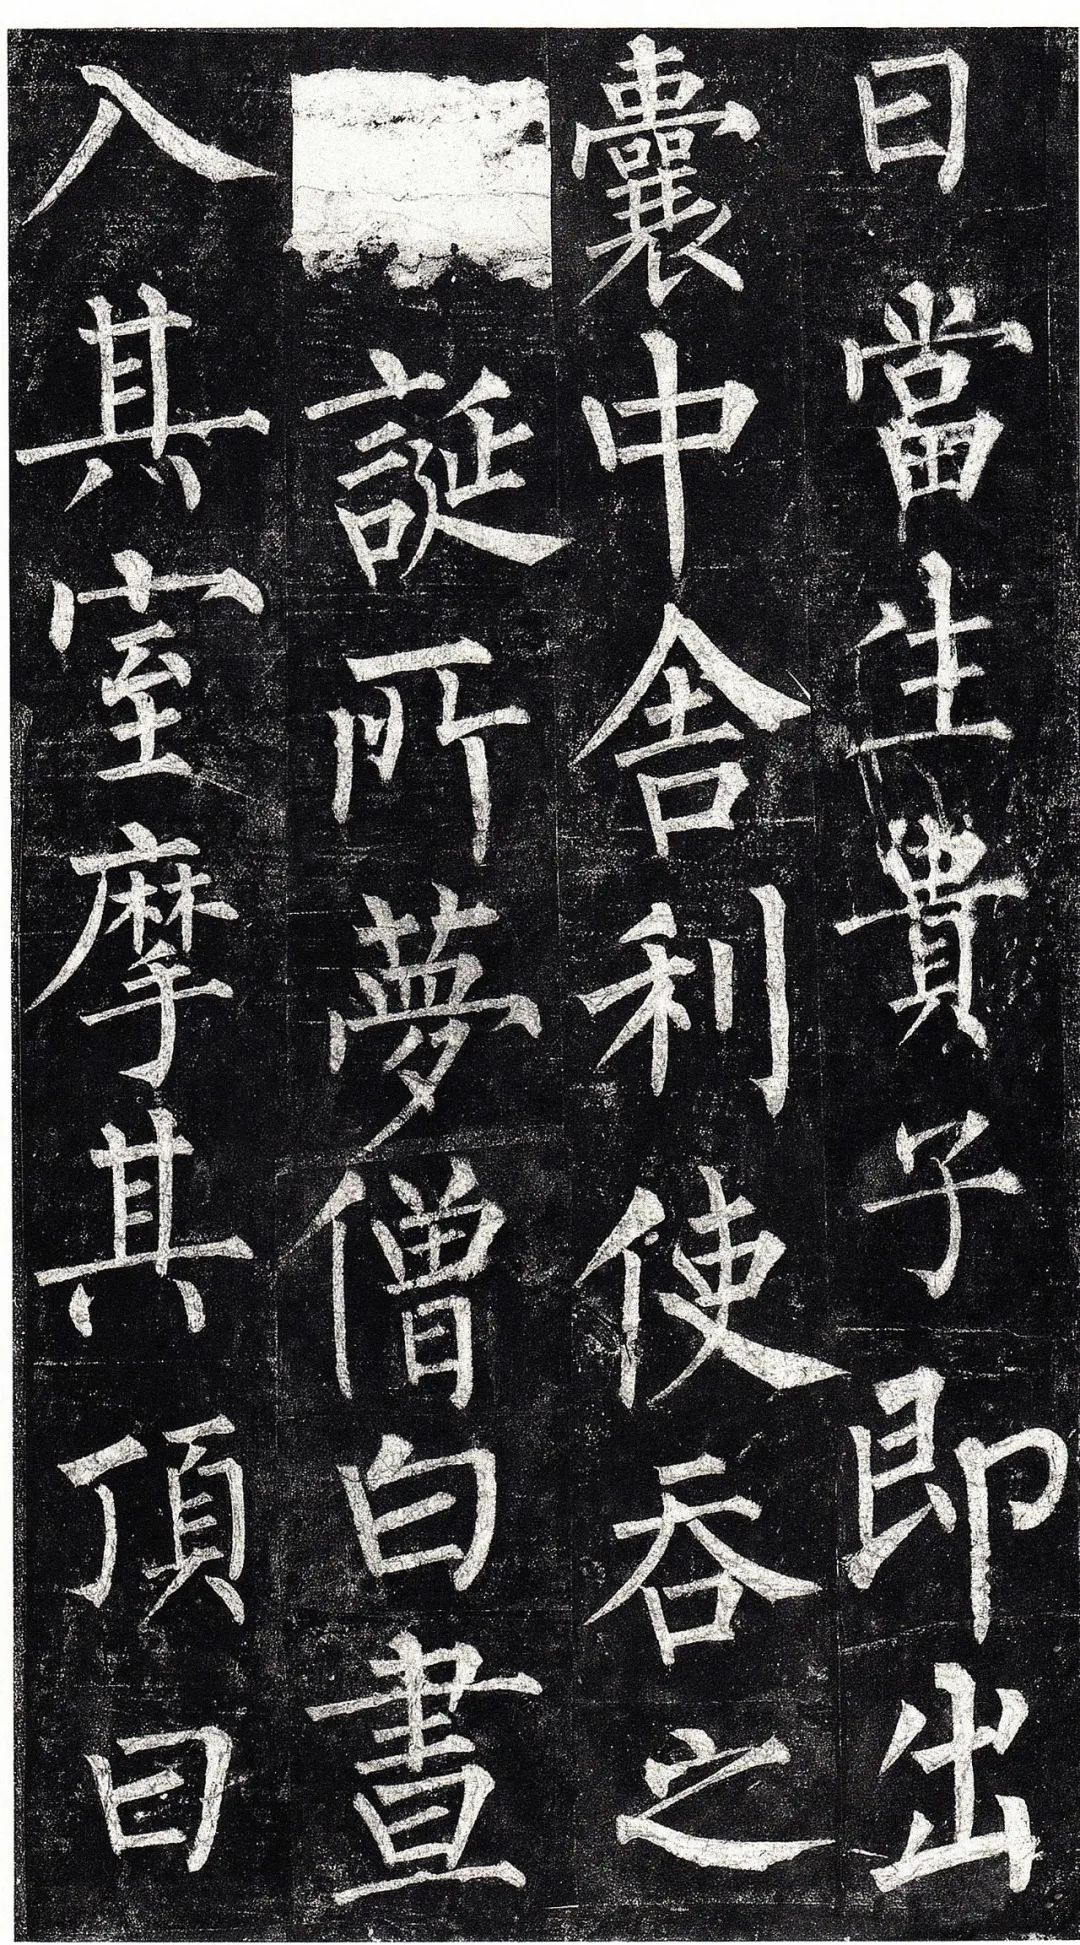 曰當生貴子即出
囊中舍利使吞之
誕所夢僧白晝
入其室摩其頂曰